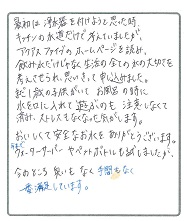 最初は浄水器を付けようと思った時、
キッチンの水道だけで考えていましたが、
アクアスファイブのホームページを読み、
飲み水だけじゃなく生活の全ての水の大切さを
考えさせられ、思いきって申し込みました。
まだ1歳の子供がいて お風呂の時に
水を口に入れて遊ぶのも 注意しなくて
済み、ストレスもなくなった気がします。
おいしくて安全なお水を ありがとうございます。
今まで
ウォーターサーバー やペットボトルも試しましたが、
今のところ 臭いもなく 手間もなく
一番満足しています。